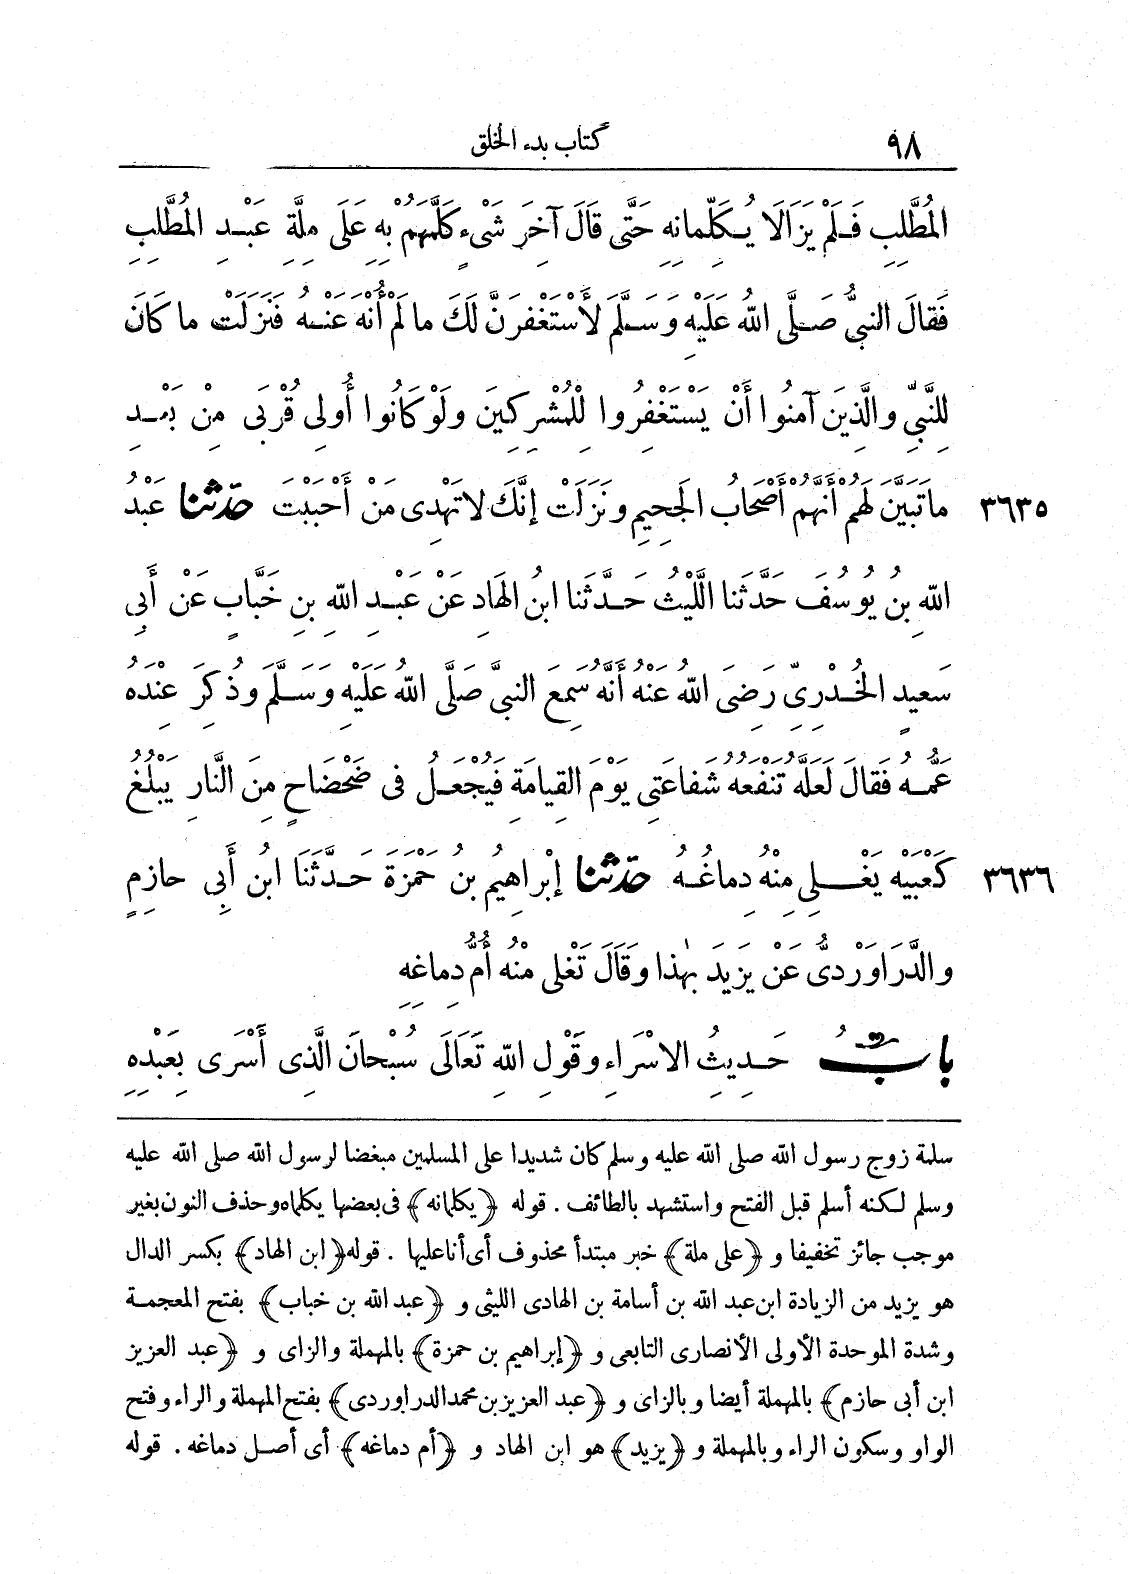 ٩٨ كتاب بدء الخلق
المُطَّلِبِ فَلَمْ يَزَالَا يُكَلِّمانِهِ حَتَّى قَالَ آخِرَ شَىْءٍ كَلَّمَهُمْ بِهِ عَلَى مِلَّةِ عَبْدِ المُطَّلِبِ
فَقالَ النبىُّ صَلَّى اللهُ عَلَيْهِ وَسَلَّمَ لأَسْتَغْفِرَنَّ لَكَ ما لَمْ أُنْهَ عَنْهُ فَنَزَلَتْ ما كانَ
لِلنَّبِىِّ والَّذِينَ آمنُوا أَنْ يَسْتَغْفِرُوا لِلْمُشْرِكِينَ ولَوْ كانُوا أُولِى قُرْبَى مِنْ بَعْدِ
٣٦٣٥ ماتَبَيَّنَ لَهُمْ أَنَّهُمْ أَصْحابُ الجَحِيمِ ونَزَلَتْ إِنَّكَ لاتَهْدِى مَنْ أَحْبَبْتَ حَدَّثنا عَبْدُ
اللهِ بنُ يُوسُفَ حَدَّثَنا اللَّيْثُ حَدَّثَنا ابنُ الهَادِ عَنْ عَبْدِ اللهِ بنِ خَبَّابٍ عَنْ أَبِى
سَعِيدٍ الخُدْرِىِّ رَضِىَ اللهُ عَنْهُ أَنَّهُ سَمِعَ النبىَّ صَلَّى اللهُ عَلَيْهِ وَسَلَّمَ وذُكِرَ عِنْدَهُ
عَمُّهُ فَقالَ لَعَلَّهُ تَنْفَعُهُ شَفاعَتِى يَوْمَ القِيامَةِ فَيُجْعَلُ فى ضَحْضَاحٍ مِنَ النَّارِ يَبْلُغُ
٣٦٣٦ كَعْبَيْهِ يَغْلِى مِنْهُ دِماغُهُ حَدَّثنا إِبْراهِيمُ بنُ حَمْزَةَ حَدَّثَنَا ابنُ أَبِى حازِمٍ
والدَّرَاوَرْدِىُّ عَنْ يَزِيدَ بِهٰذا وقَالَ تَغْلِى مِنْهُ أُمُّ دِماغِهِ
بابُ حَدِيثُ الاسْرَاءِ وقَوْلِ اللهِ تَعَالَى سُبْحانَ الَّذِى أَسْرَى بِعَبْدِهِ
سلمة زوج رسول الله صلى الله عليه وسلم كان شديدا على المسلمين مبغضا لرسول الله صلى الله عليه
وسلم لكنه أسلم قبل الفتح واستشهد بالطائف . قوله ﴿يكلمانه﴾ فى بعضها يكلماه وحذف النون بغير
موجب جائز تخفيفا و ﴿على ملة﴾ خبر مبتدأ محذوف أى أنا عليها . قوله ﴿ابن الهاد﴾ بكسر الدال
هو يزيد من الزيادة ابن عبد الله بن أسامة بن الهادى الليثى و ﴿عبد الله بن خباب﴾ بفتح المعجمة
وشدة الموحدة الأولى الأنصارى التابعى و ﴿إبراهيم بن حمزة﴾ بالمهملة والزاى و ﴿عبد العزيز
ابن أبى حازم﴾ بالمهملة أيضا وبالزاى و ﴿عبد العزيز بن محمد الدراوردى﴾ بفتح المهملة والراء وفتح
الواو وسكون الراء وبالمهملة و ﴿يزيد﴾ هو ابن الهاد و ﴿أم دماغه﴾ أى أصل دماغه . قوله